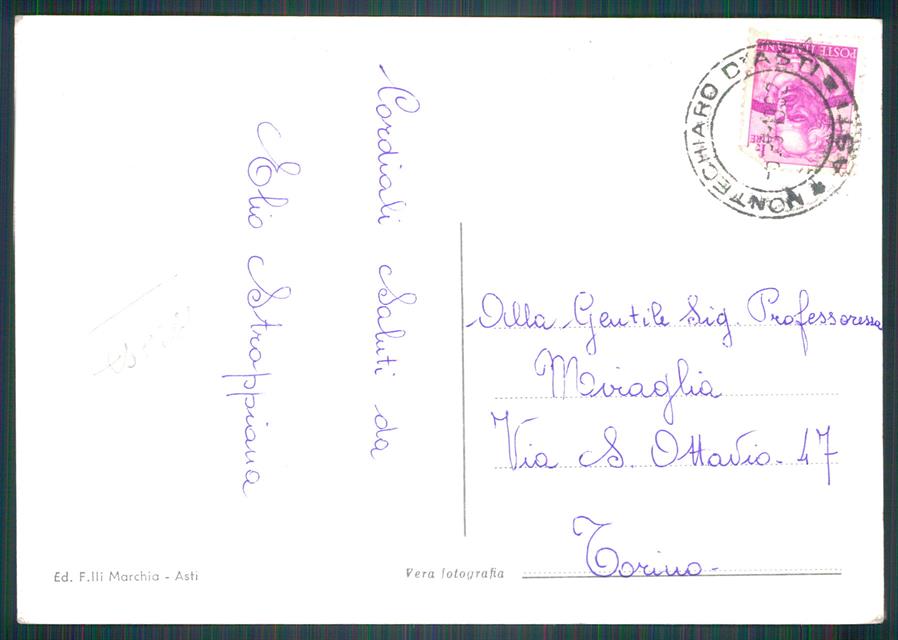 Cordiali Saluti da
Elio Stroppiana
POSTE ITALIANE
MONTECHIARO D'ASTI * ASTI *
Alla Gentile Sig. Professoressa
Miraglia
Via S. Ottavio - 47
Torino -
Ed. F.lli Marchia - Asti
Vera fotografia